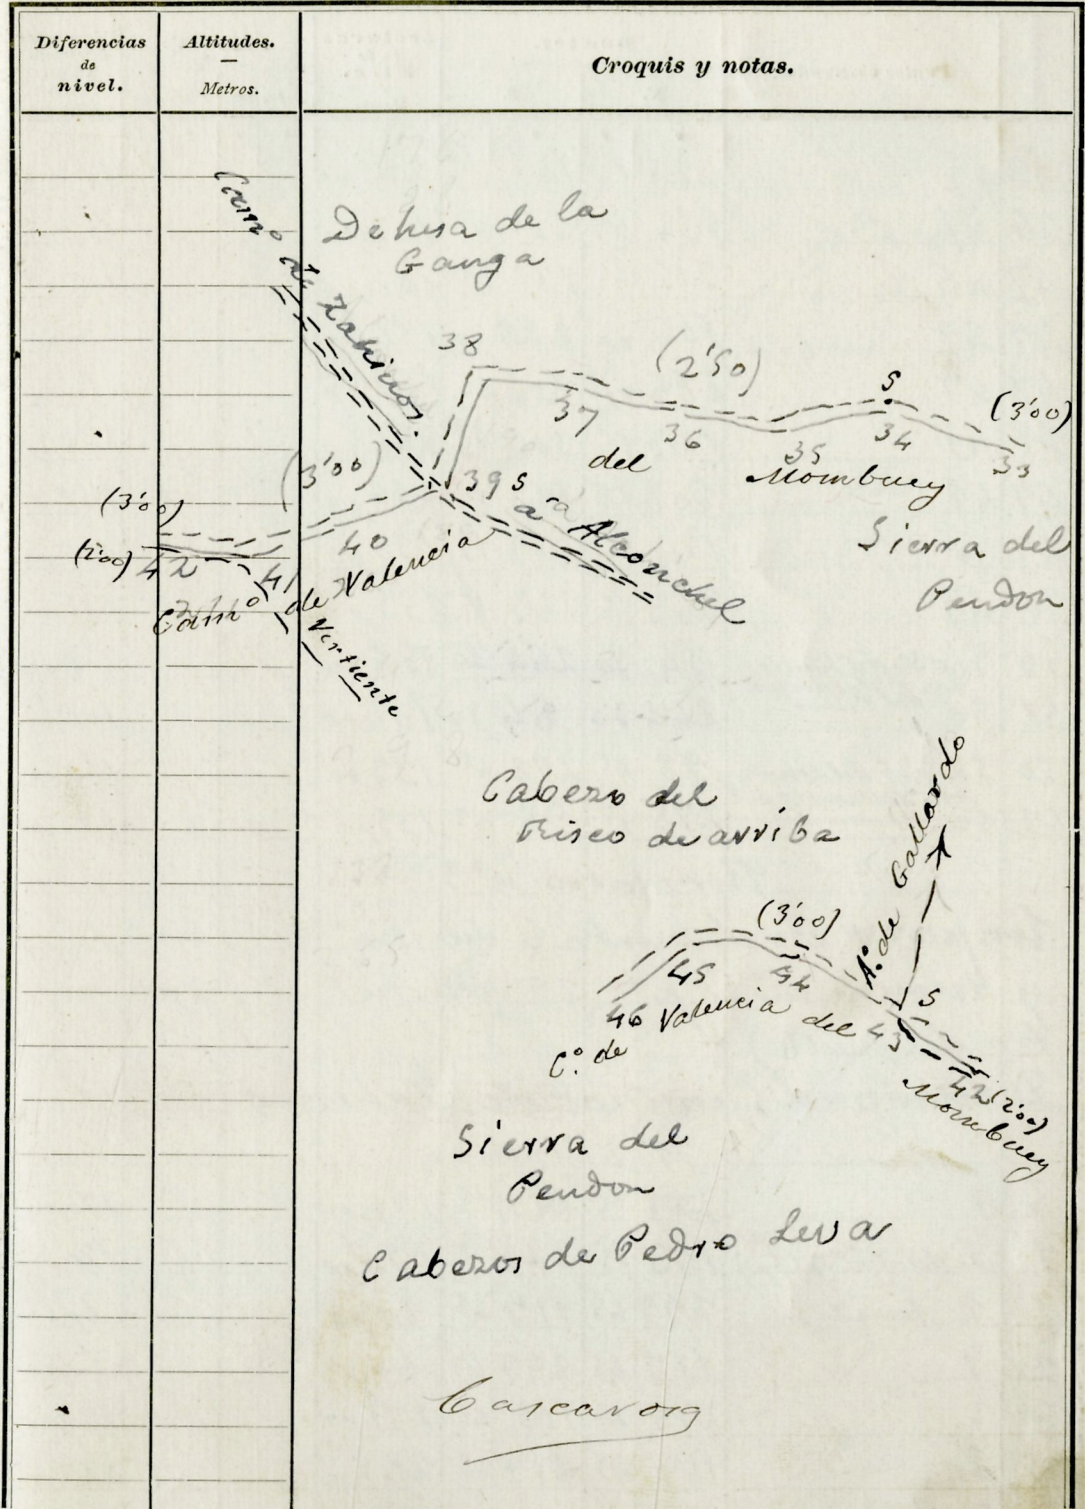 Diferencias
de
nivel.
Altitudes.
Metros.
Croquis y notas.
Camº de Zahinos.
Dehesa de la
Ganga
38
(2'50)
S
(3'00)
37
36
35
34
33
del
Mombuey
(3'00)
39 S
a Alconchel
(3'00)
40
Sierra del
Pendon
(2'00)
42
41
Camº de Valencia
Vertiente
Cabezo del
Risco de arriba
Aº. de Gallardo
(3'00)
45
44
S
46
Valencia del
43
Cº. de
42
(2'00)
Mombuey
Sierra del
Pendon
Cabezos de Pedro Leva